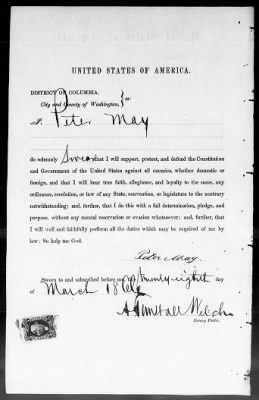 UNITED STATES OF AMERICA.
DISTRICT OF COLUMBIA,
City and County of Washington, } ss:
I, Peter May
do solemnly Swear that I will support, protect, and defend the Constitution
and Government of the United States against all enemies, whether domestic
or foreign, and that I will bear true faith, allegiance, and loyalty to the same, any
ordinance, resolution, or law of any State, convention, or legislature to the contrary
notwithstanding; and, further, that I do this with a full determination, pledge, and
purpose, without any mental reservation or evasion whatsoever; and, further, that
I will well and faithfully perform all the duties which may be required of me by
law: So help me God.
Peter May.
Sworn to and subscribed before me this twenty-eighth day
of March 186
Welch
Notary Public.